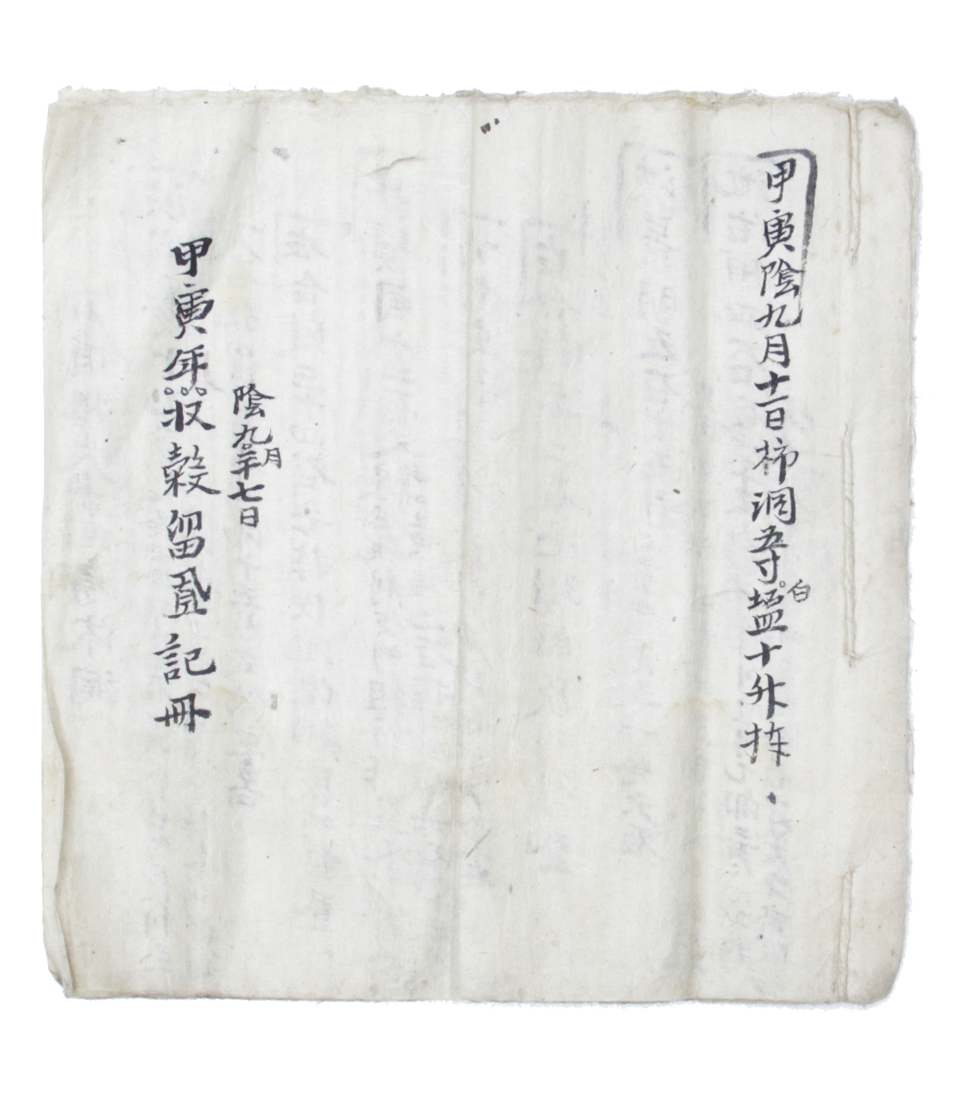 甲寅陰九月十一日柿洞五寸塩十升
白
陰九月二十七日
甲寅年収穀留置記冊